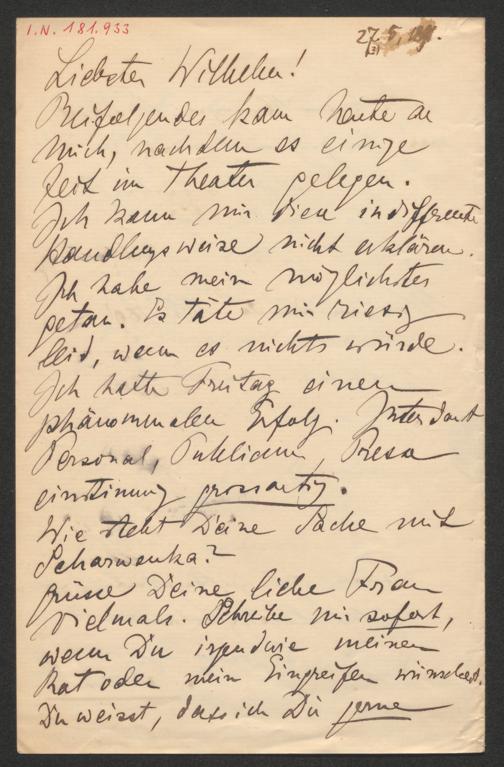 I.N. 181.933
27.5.
Liebster Wilhelm!
Beifolgendes kam heute an
mich, nachdem es einige
Zeit im Theater gelegen.
Ich kann mir diese indifferente
Handlungsweise nicht erklären.
Ich habe mein möglichstes
getan. Es täte mir riesig
leid, wenn es nichts würde.
Ich hatte Freitag einen
phänomenalen Erfolg. Intendant
Personal, Publicum, Presse
einstimmig grossartig.
Wie steht Deine Sache mit
Scharwenka?
Grüsse Deine liebe Frau
vielmals. Schreibe mir sofort,
wenn Du irgendwie meinen
Rat oder mein Eingreifen wünschest.
Du weisst, dass ich Dir gerne